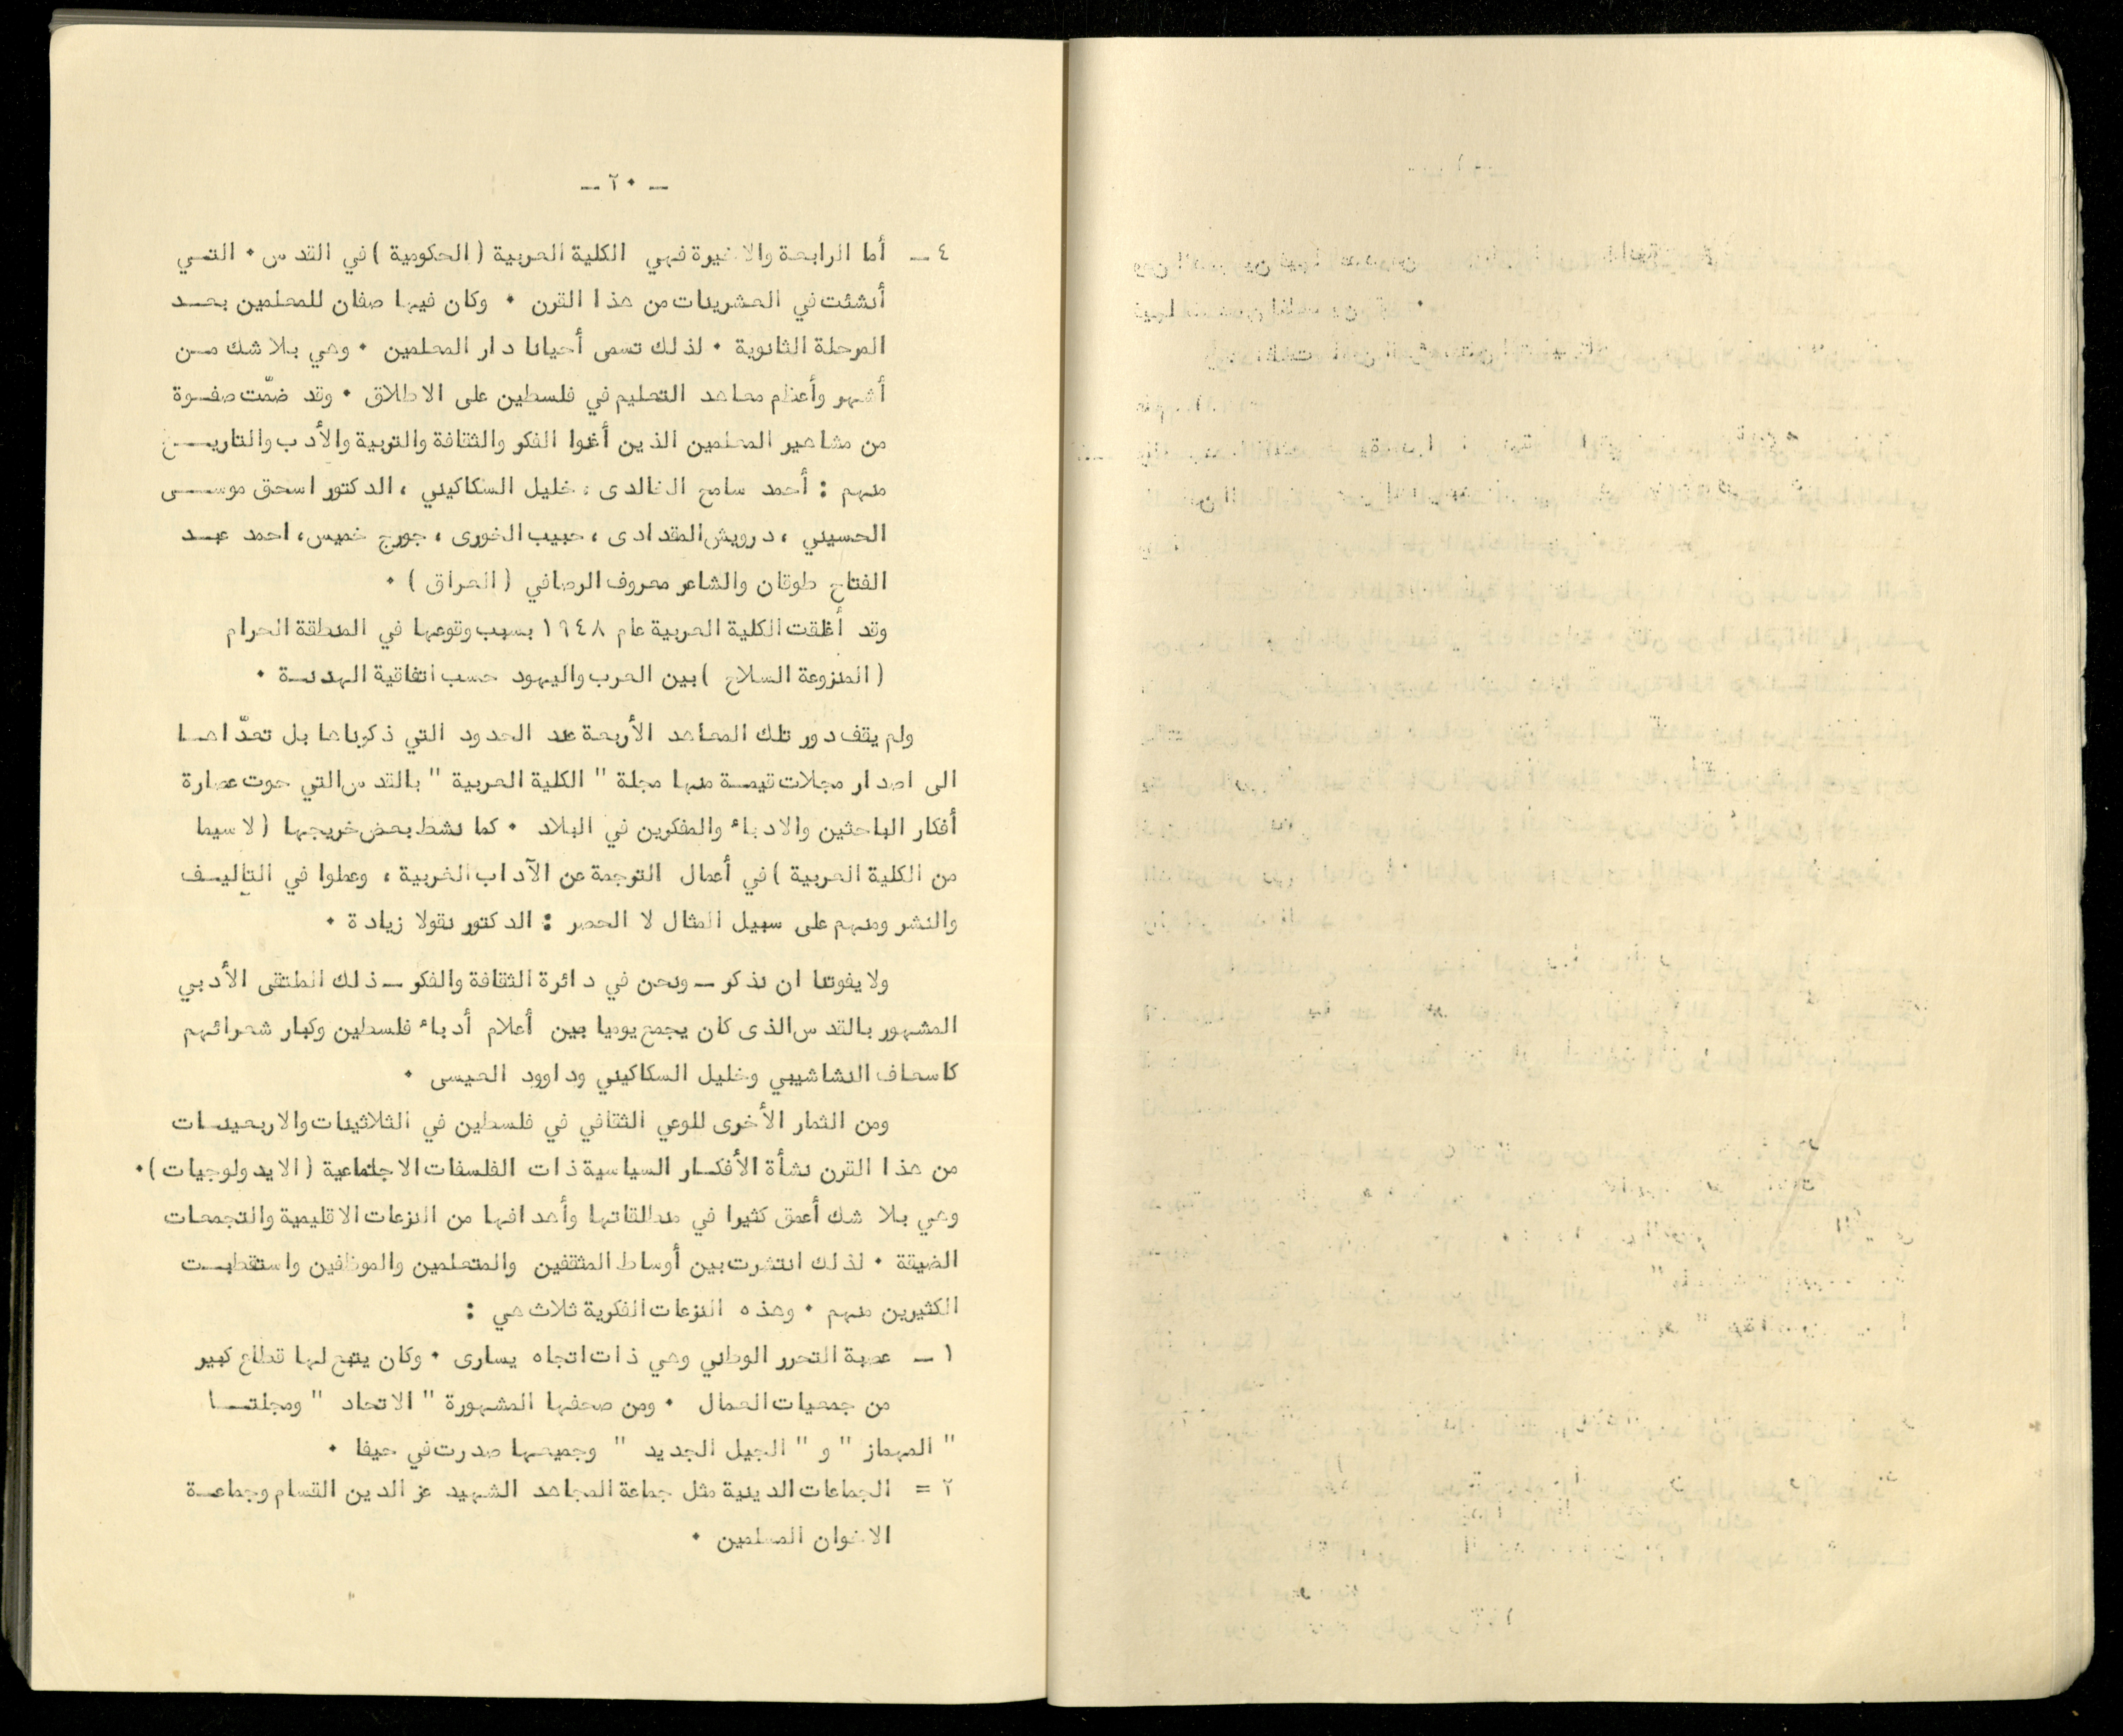 - ٢٠ -
٤ - أما الرابعة والاخيرة فهي الكلية العربية (الحكومية) في القدس. التي
أنشئت في العشرينات من هذا القرن . وكان فيها صفان للمعلمين بعد
المرحلة الثانوية . لذلك تسمى أحيانا دار المعلمين . وهي بلا شك من
أشهر وأعظم معاهد التعليم في فلسطين على الاطلاق . وقد ضمّت صفوة
من مشاهير المعلمين الذين أغنوا الفكر والثقافة والتربية والأدب والتاريخ
منهم : أحمد سامح الخالدى ، خليل السكاكيني ، الدكتور اسحق موسى
الحسيني ، درويش المقدادى ، حبيب الخورى ، جورج خميس، احمد عبد
الفتاح طوقان والشاعر معروف الرصافي (العراق) .
وقد أغلقت الكلية العربية عام ١٩٤٨ بسبب وقوعها في المنطقة الحرام
(المنزوعة السلاح) بين العرب واليهود حسب اتفاقية الهدنة .
ولم يقف دور تلك المعاهد الأربعة عند الحدود التي ذكرناها بل تعدّاها
الى اصدار مجلات قيمة منها مجلة " الكلية العربية " بالقدس التي حوت عصارة
أفكار الباحثين والادباء والمفكرين في البلاد . كما نشط بعض خريجها (لا سيما
من الكلية العربية) في أعمال الترجمة عن الآداب الغربية ، وعملوا في التأليف
والنشر ومنهم على سبيل المثال لا الحصر : الدكتور نقولا زيادة .
ولا يفوتنا ان نذكر - ونحن في دائرة الثقافة والفكر - ذلك الملتقى الأدبي
المشهور بالقدس الذى كان يجمع يوميا بين أعلام أدباء فلسطين وكبار شعرائهم
كاسعاف النشاشيبي وخليل السكاكيني وداوود العيسى .
ومن الثمار الأخرى للوعي الثقافي في فلسطين في الثلاثينات والاربعينات
من هذا القرن نشأة الأفكار السياسية ذات الفلسفات الاجتماعية (الايدولوجيات).
وهي بلا شك أعمق كثيرا في منطلقاتها وأهدافها من النزعات الاقليمية والتجمعات
الضيقة . لذلك انتشرت بين أوساط المثقفين والمتعلمين والموظفين واستقطبت
الكثيرين منهم . وهذه النزعات الفكرية ثلاث هي :
١ - عصبة التحرر الوطني وهي ذات اتجاه يسارى . وكان يتبع لها قطاع كبير
من جمعيات العمال . ومن صحفها المشهورة " الاتحاد " ومجلتا
" المهماز " و " الجيل الجديد " وجميعها صدرت في حيفا .
٢ = الجماعات الدينية مثل جماعة المجاهد الشهيد عز الدين القسام وجماعة
الاخوان المسلمين .